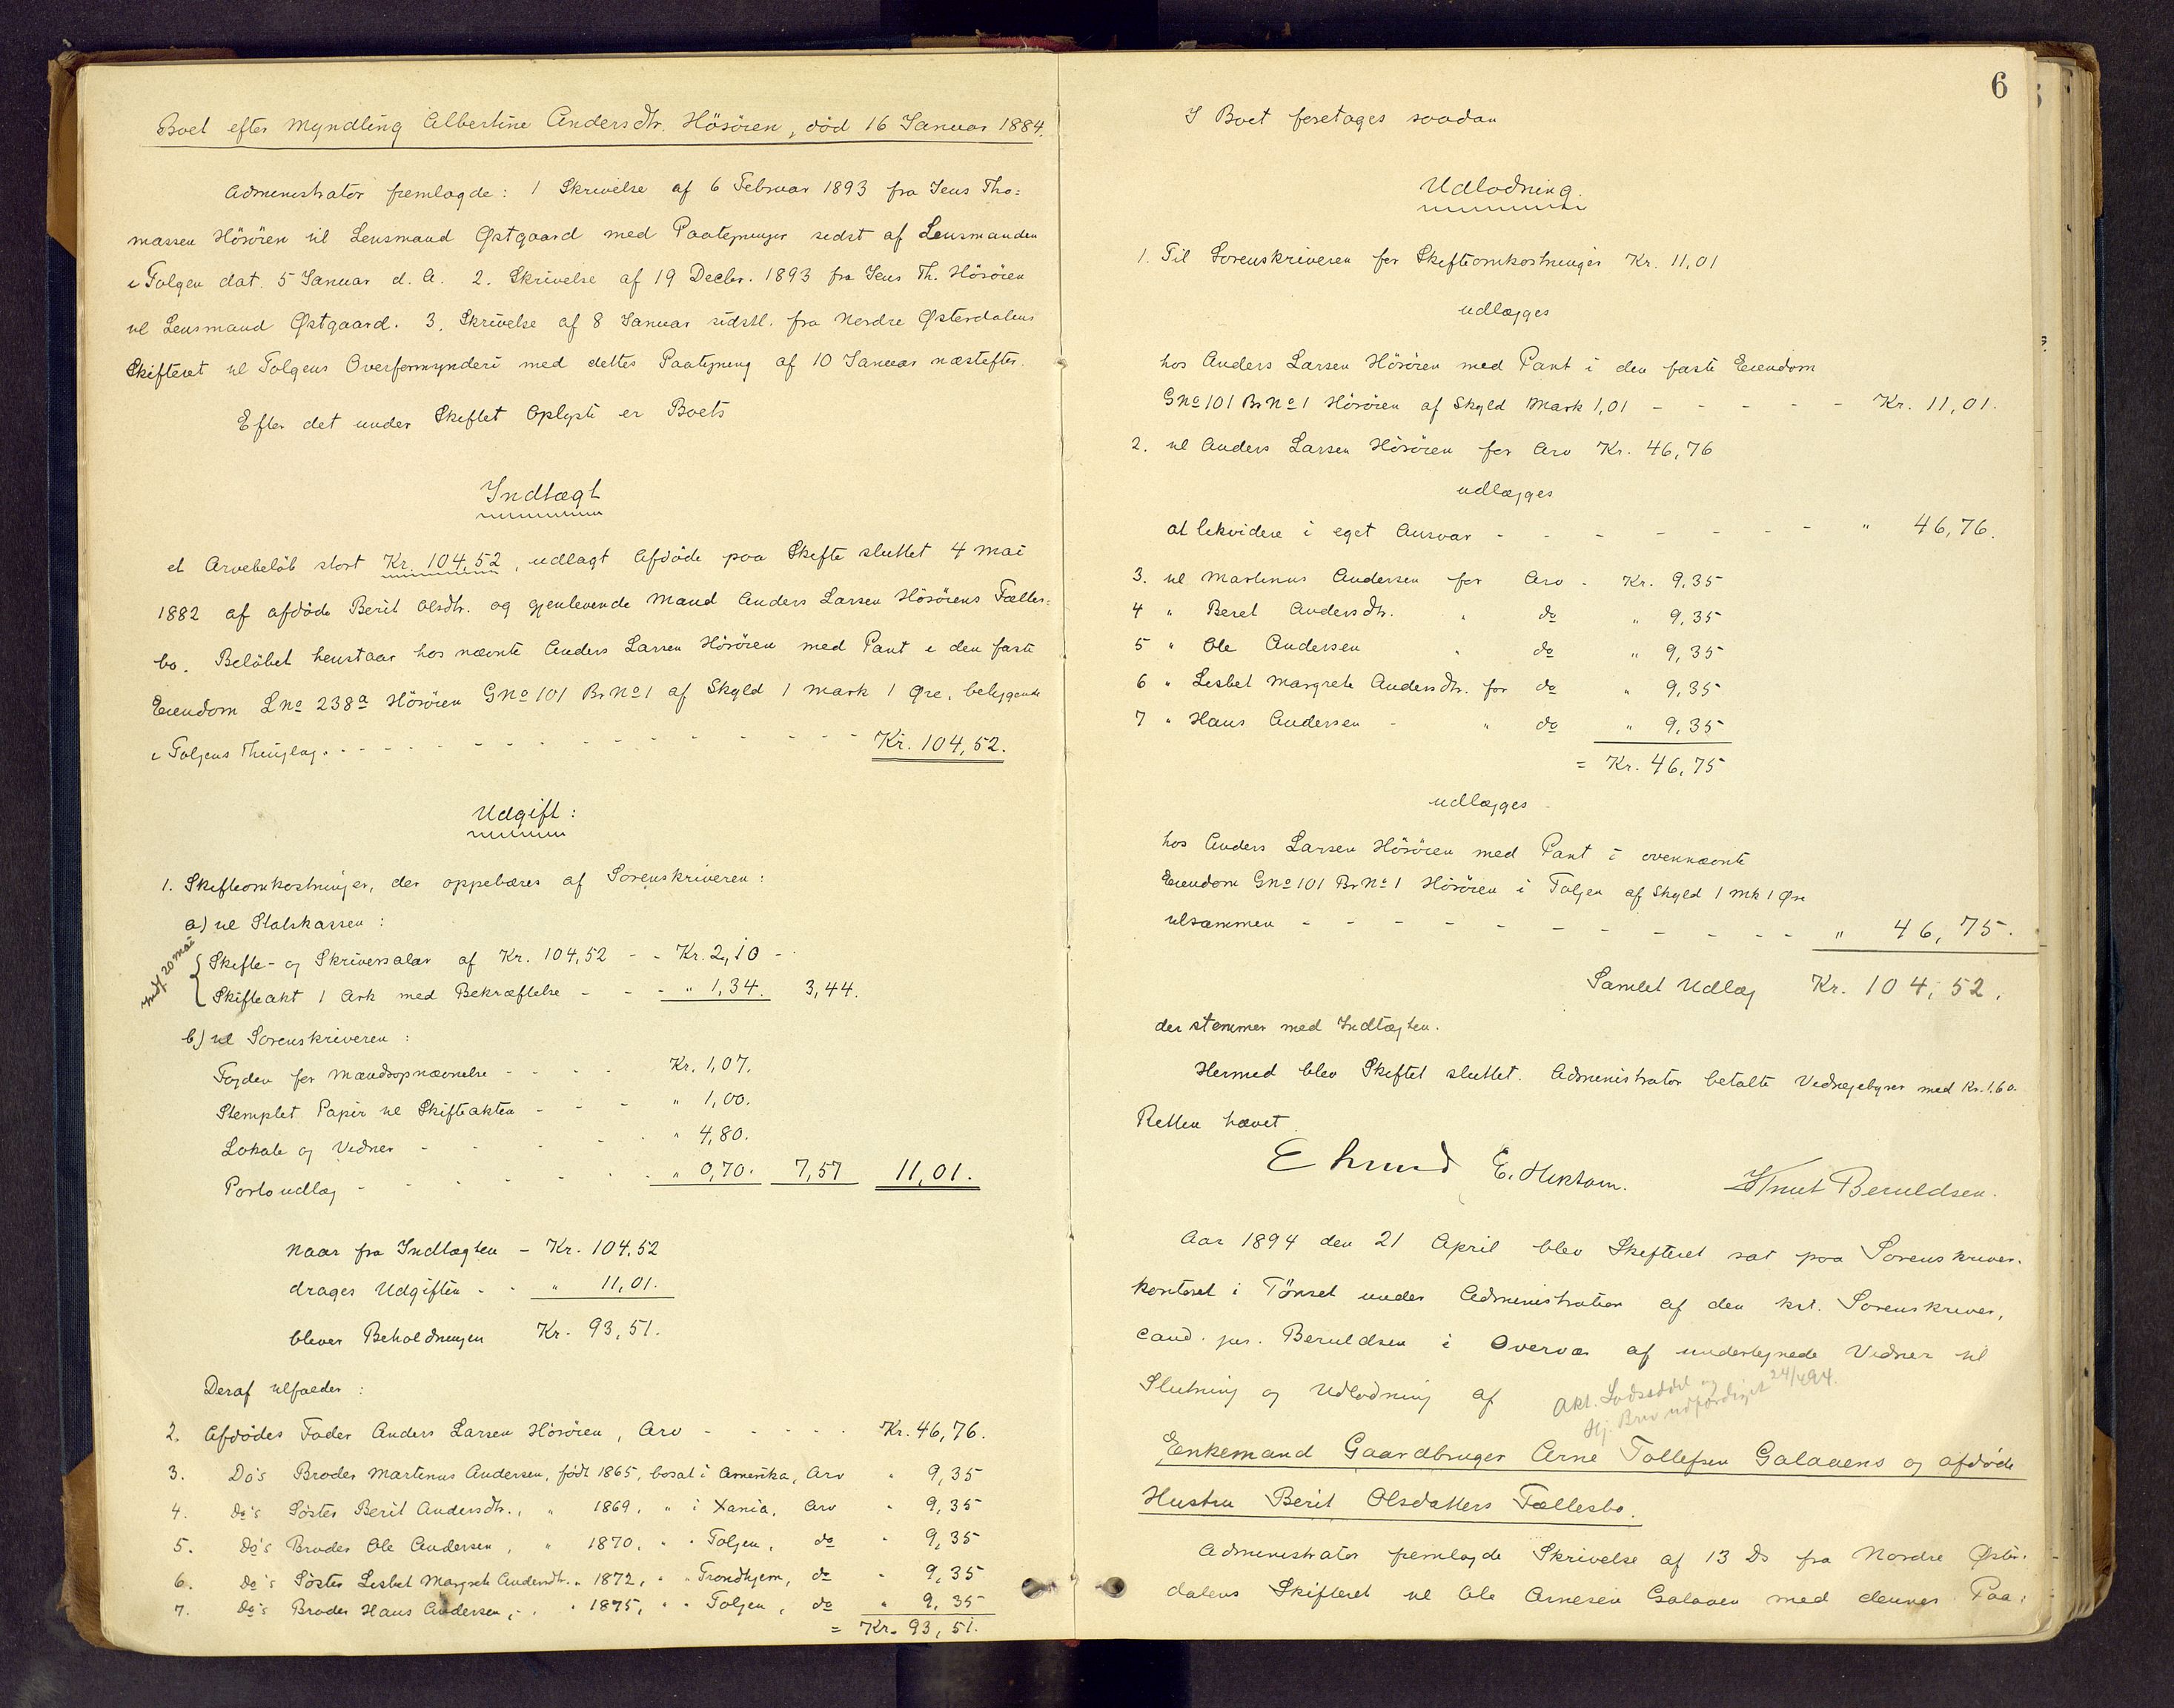 Boet efter Myndling Albertine Andersdtr. Hösöien, död 16 Januar 1884.
Administrator fremlagde: 1 Skrivelse af 6 Februar 1893 fra Jens Tho=
massen Hösöien til Lensmand Østgaard med Paategninger sidst af Lensmanden
i Tolgen dat. 5 Januar d. A. 2. Skrivelse af 19 Decbr. 1893 fra Jens Th. Hösöien
til Lensmand Østgaard. 3. Skrivelse af 8 Januar sidstl. fra Nordre Østerdalens
Skifteret til Tolgens Overformynderi med dettes Paategning af 10 Januar næstefter.
Efter det under Skiftet Oplyste er Boets
Indtægt
et Arvebeløb stort Kr. 104,52, udlagt Afdöde paa Skifte sluttet 4 Mai
1882 af afdöde Berit Olsdtr. og gjenlevende Mand Anders Larsen Hösöiens Fælles-
bo. Belöbet henstaar hos nævnte Anders Larsen Hösöien med Pant i den faste
Eiendom Lno 238a Hösöien Gno 101 Brno 1 af Skyld 1 Mark 1 Øre, beliggende
i Tolgens Thinglag. - - - - Kr. 104,52.
Udgift:
1. Skifteomkostninger, der oppebæres af Sorenskriveren:
a) til Statskassen:
Indf. 20 Mai
Skifte- og Skriversalær af Kr. 104,52 - - Kr. 2,10 -
Skifteakt 1 Ark med Bekræftelse - - - " 1,34. 3,44.
b) til Sorenskriveren:
Fogden for Mændsopnævnelse - - - - Kr. 1,07.
Stemplet Papir til Skifteakten - - - " 1,00.
Lokale og Vidner - - - - " 4,80.
Portoudlæg - - - - - " 0,70. 7,57 11,01.
Naar fra Indtægten - Kr. 104,52
drages Udgiften - - " 11,01.
bliver Beholdningen Kr. 93,51.
Deraf tilfalder:
2. Afdödes Fader Anders Larsen Hösöien, Arv - - - - - Kr. 46,76.
3. Do's Broder Martinus Andersen, född 1865, bosat i Amerika, Arv " 9,35
4. Do's Söster Berit Andersdtr., " 1869, " i Xania, Arv " 9,35
5. Do's Broder Ole Andersen, " 1870, " " Tolgen, do " 9,35
6. Do's Söster Lisbet Margrete Andersdtr. " 1872, " " Trondhjem, do " 9,35
7. Do's Broder Hans Andersen, - " 1875, " " Tolgen, do " 9,35
= Kr. 93,51.
6
I Boet foretages saadan
Udlodning.
1. Til Sorenskriveren for Skifteomkostninger Kr. 11,01
udlægges
hos Anders Larsen Hösöien med Pant i den faste Eiendom
Gno 101 Brno 1 Hösöien af Skyld Mark 1,01 - - - - - Kr. 11,01.
2. til Anders Larsen Hösöien for Arv Kr. 46,76
udlægges
at likvidere i eget Ansvar - - - - - - - " 46,76.
3. til Martinus Andersen for Arv - Kr. 9,35
4 " Beret Andersdtr. " do " 9,35
5 " Ole Andersen " do " 9,35
6 " Lisbet Margrete Andersdtr. for do " 9,35
7 " Hans Andersen - " do " 9,35
= Kr. 46,75
udlægges
hos Anders Larsen Hösöien med Pant i ovennævnte
Eiendom Gno 101 Brno 1 Hösöien i Tolgen af Skyld 1 Mk 1 Øre
tilsammen - - - - - - - - - - " 46,75.
Samlet Udlæg Kr. 104,52.
der stemmer med Indtægten.
Hermed blev Skiftet sluttet. Administrator betalte Vidnegebyrer med Kr. 1,60.
Retten hævet.
Knut Beruldsen.
Aar 1894 den 21 April blev Skifteret sat paa Sorenskriver-
kontoret i Tönset under Administration af den kst. Sorenskriver,
cand. jur. Beruldsen i Overvær af undertegnede Vidner til
Slutning og Udlodning af
Akt. Lodseddel og
Hj. Brev udfærdiget 24/4 94.
Enkemand Gaardbruger Arne Tollefsen Galaaens og afdöde
Hustru Berit Olsdatters Fællesbo.
Administrator fremlagde Skrivelse af 13 Ds fra Nordre Øster-
dalens Skifteret til Ole Arnesen Galaaen med dennes Paa-